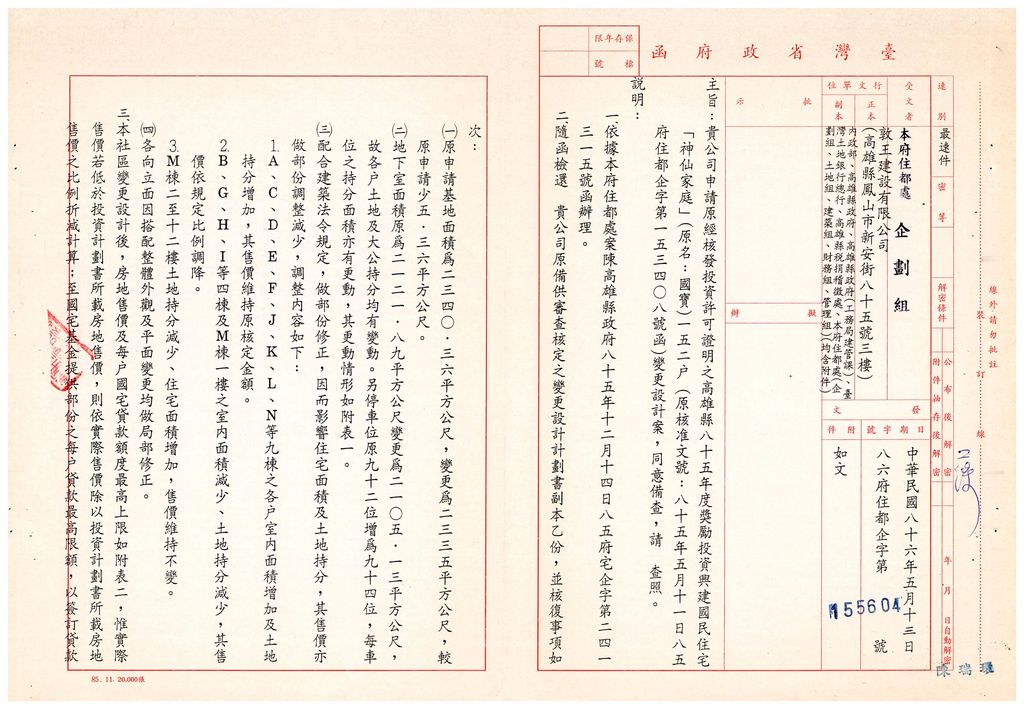 臺灣省政府函
保存年限
檔號
速別
最速件
密等
解密條件
公布後解密
附件抽存後解密
年月日自動解密
受文者
本府住都處 企劃組
行文單位
正本
敦王建設有限公司
(高雄縣鳳山市新安街八十五號三樓)
副本
內政部、高雄縣政府、高雄縣政府(工務局建管課)、臺
灣土地銀行總行、高雄縣稅捐稽徵處、本府住都處(企
劃組、土地組、建築組、財務組、管理組)(均含附件)
發文
日期
中華民國八十六年五月十三日
字號
八六府住都企字第 155604 號
附件
如文
批示
擬辦
主旨:貴公司申請原經核發投資許可證明之高雄縣八十五年度獎勵投資興建國民住宅
「神仙家庭」(原名:國寶)一五二户(原核准文號:八十五年五月十一日八五
府住都企字第一五三四〇八號函)變更設計案,同意備查,請 查照。
說明:
一、依據本府住都處案陳高雄縣政府八十五年十二月十四日八五府宅企字第二四一
三一五號函辦理。
二、隨函檢還 貴公司原備供審查核定之變更設計計劃書副本乙份,並核復事項如
次:
㈠原申請基地面積為二三四〇.三六平方公尺,變更為二三三五平方公尺,較
原申請少五.三六平方公尺。
㈡地下室面積原為二一二一.八九平方公尺變更為二一〇五.一三平方公尺,
故各户土地及大公持分均有變動。另停車位原九十二位增為九十四位,每車
位之持分面積亦有更動,其更動情形如附表一。
㈢配合建築法令規定,做部份修正,因而影響住宅面積及土地持分,其售價亦
做部份調整減少,調整內容如下:
1.A、C、D、E、F、J、K、L、N等九棟之各户室內面積增加及土地
持分增加,其售價維持原核定金額。
2.B、G、H、I等四棟及M棟一樓之室內面積減少、土地持分減少,其售
價依規定比例調降。
3.M棟二至十二樓土地持分減少、住宅面積增加,售價維持不變。
㈣各向立面因搭配整體外觀及平面變更均做局部修正。
三、本社區變更設計後,房地售價及每户國宅貸款額度最高上限如附表二,惟實際
售價若低於投資計劃書所載房地售價,則依實際售價除以投資計劃書所載房地
售價之比例折減計算;至國宅基金提供部份之每户貸款最高限額,以簽訂貸款
線外請勿批註
裝訂線
陳瑞珽
85. 11. 20,000張